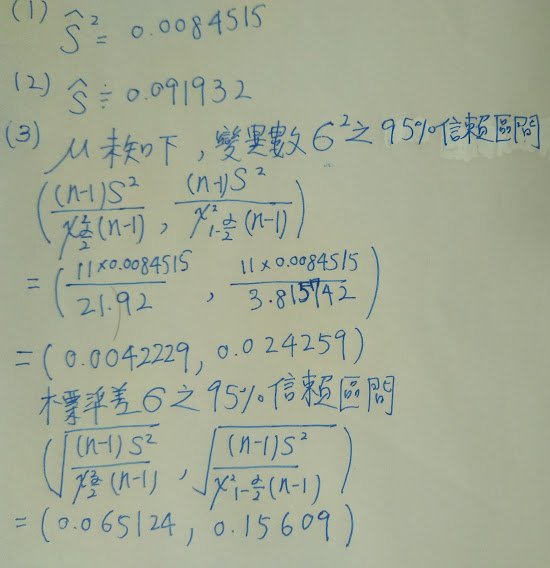 (1) Ŝ² = 0.0084515
(2) Ŝ ≑ 0.091932
(3) μ未知下, 變異數σ²之95%信賴區間
((n-1)S²/χ²_{α/2}(n-1), (n-1)S²/χ²_{1-α/2}(n-1))
= (11×0.0084515/21.92, 11×0.0084515/3.815742)
= (0.0042229, 0.024259)
標準差σ之95%信賴區間
(√((n-1)S²/χ²_{α/2}(n-1)), √((n-1)S²/χ²_{1-α/2}(n-1)))
= (0.065124, 0.15609)